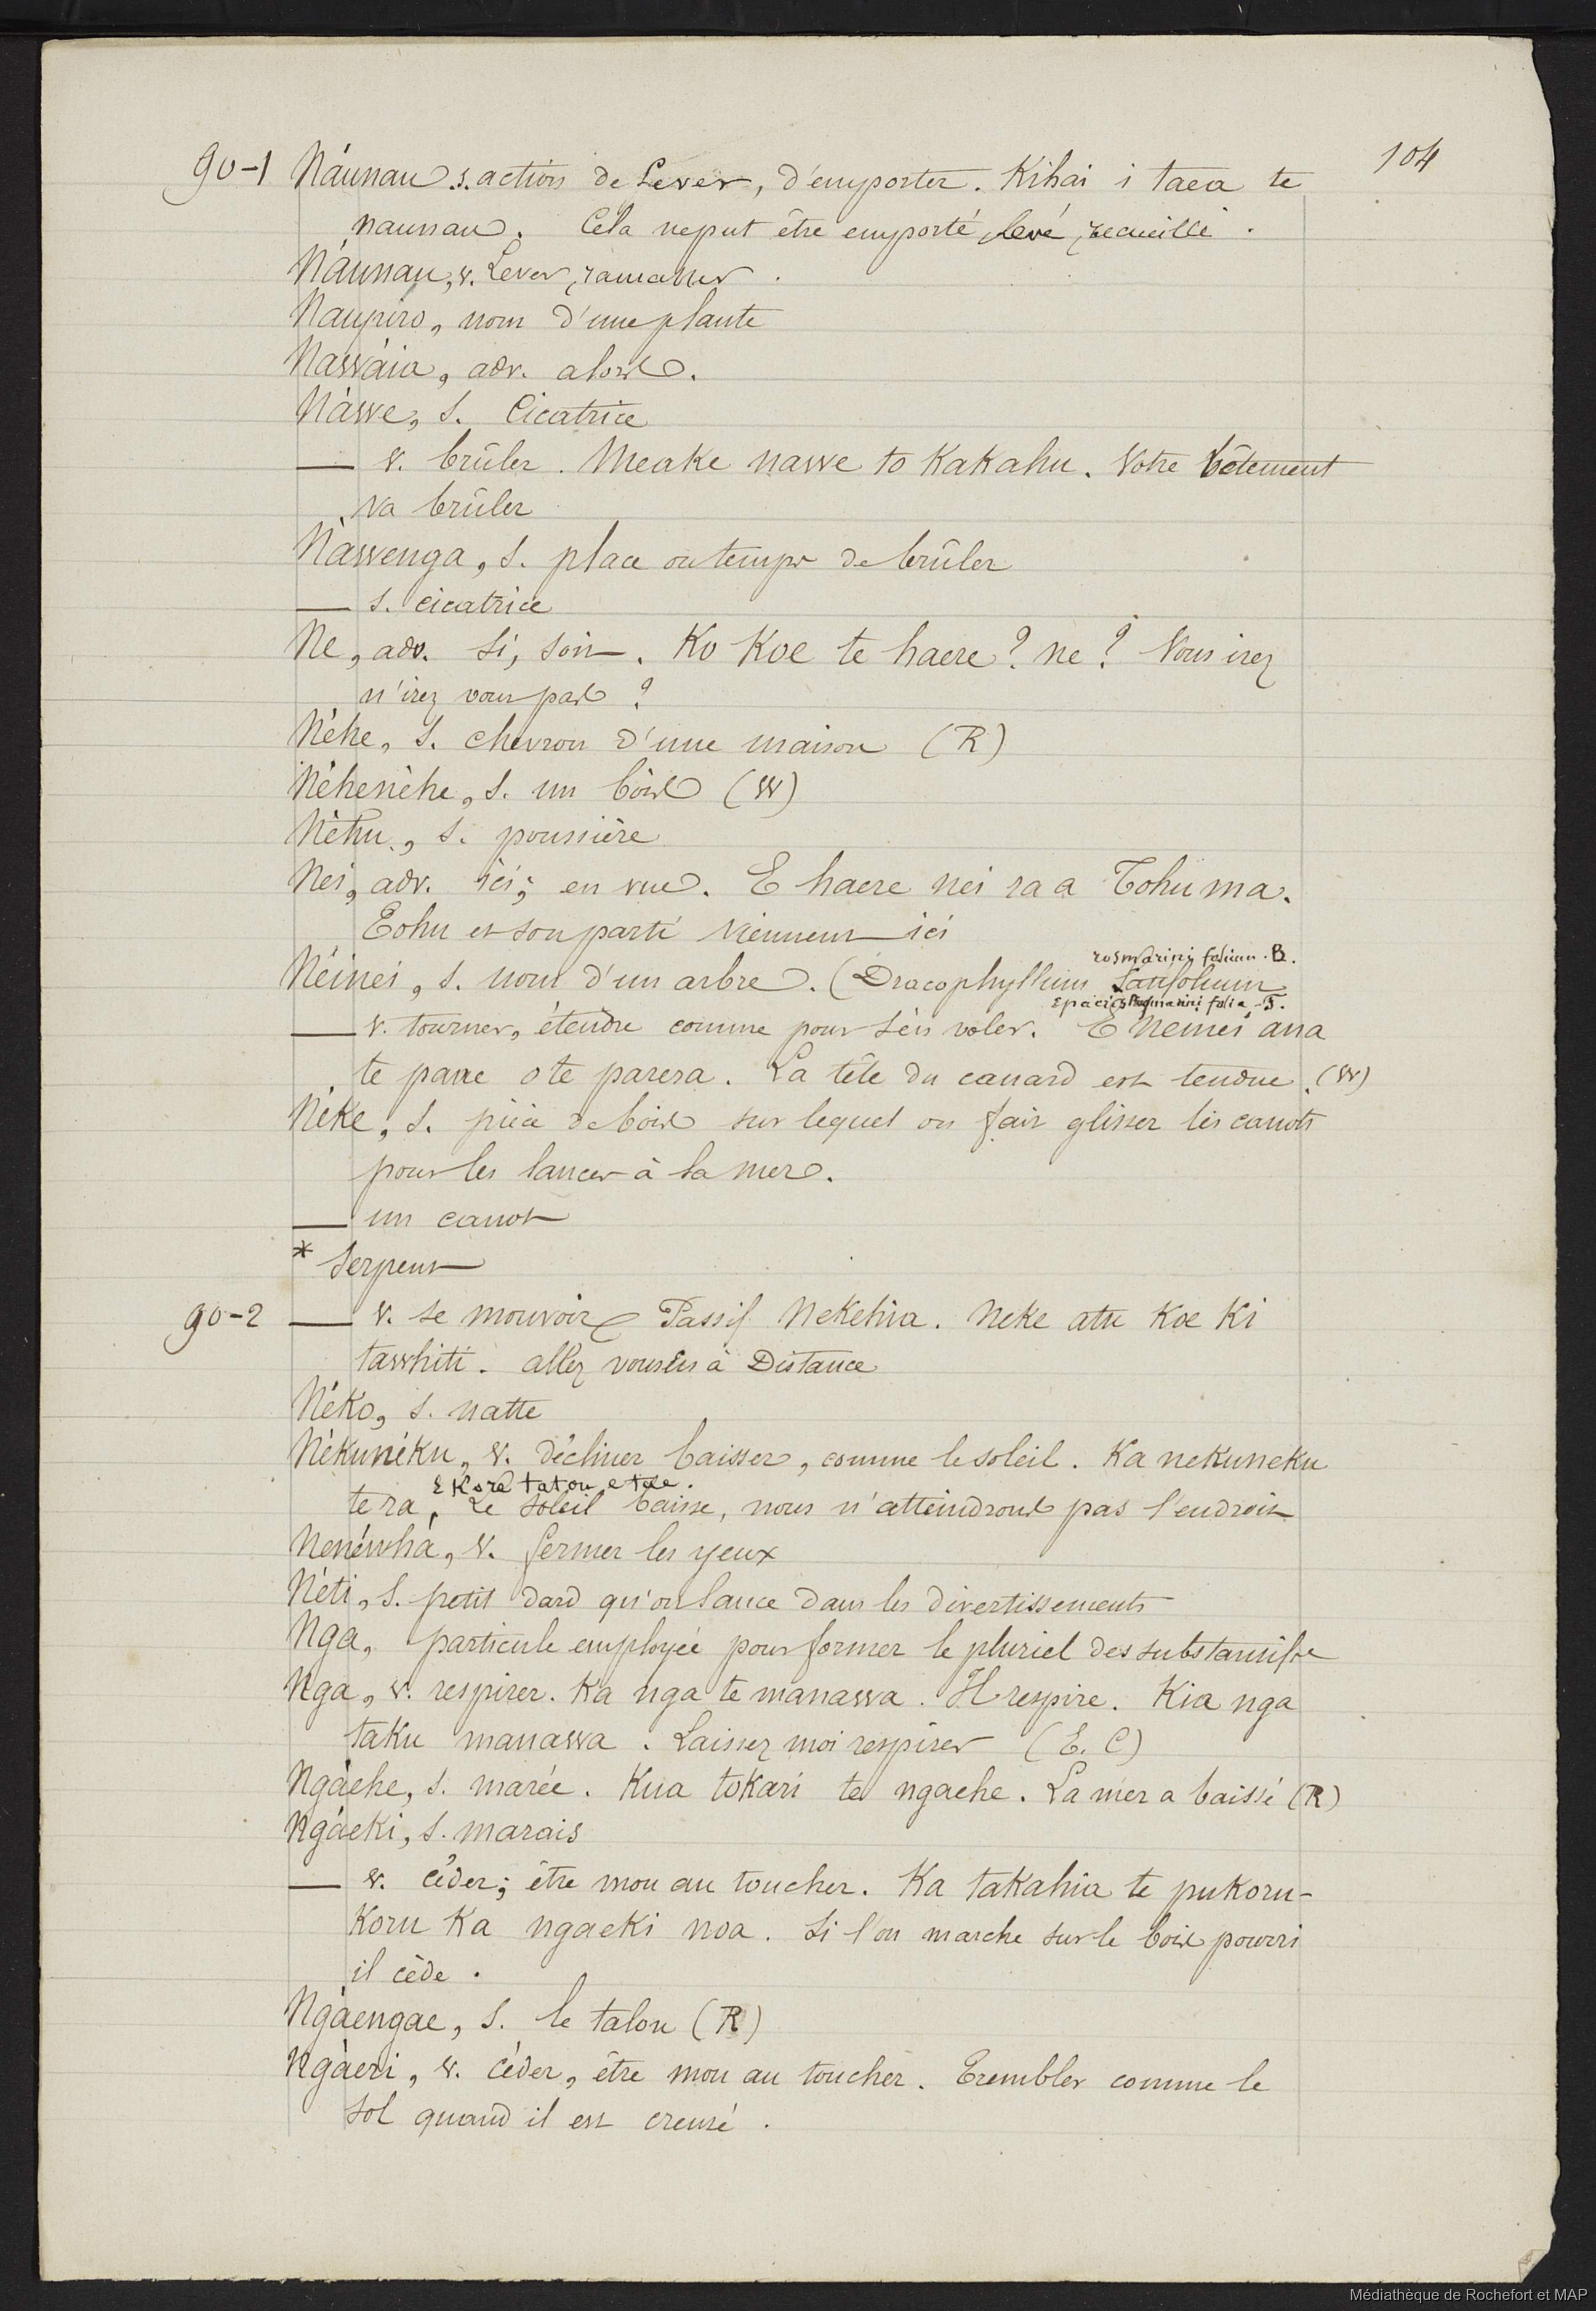 104
90-1 Náunau. s. action de Lever, d'emporter. Kihai i taea te
naunau. Cela ne put être emporté, levé, recueilli.
Náunau, v. Lever, ramasser.
Naupiro, nom d'une plante
Nawáia, adv. alors.
Náwe, s. Cicatrice
— v. brûler. Meake nawe to Kakahu. Votre vêtement
va brûler
Náwenga, s. place ou temps de brûler
— s. cicatrice
Ne, adv. Si, soit. Ko Koe te haere? ne? Vous irez
n'irez vous pas?
Néhe, s. chevron d'une maison (R)
Néhenéhe, s. un bois (W)
Néhu, s. poussière
Nei, adv. ici; en vue. E haere nei ra a Tohu ma.
Tohu et son parti viennent ici
rosmarini folium. B.
Néinei, s. nom d'un arbre. (Dracophyllum Latifolium
Epacris Rosmarini folia. F.
— v. tourner, étendre comme pour s'en voler. E Neinei ana
te pane o te parera. La tête du canard est tendue. (W)
Néke, s. pièce de bois sur lequel on fait glisser les canots
pour les lancer à la mer.
— un canot
* Serpent
90-2 — v. se mouvoir Passif Nekehia. Neke atu Koe Ki
tawhiti. allez vous en à Distance
Néko, s. natte
Nékunéku, v. décliner baisser, comme le soleil. Ka nekuneku
E Kore tatou e tae.
te ra, Le Soleil baisse, nous n'atteindrons pas l'endroit
Nenéwha, v. fermer les yeux
Néti, s. petit dard qu'on lance dans les divertissements
Nga, particule employée pour former le pluriel des substantifs
Nga, v. respirer. Ka nga te manawa. Il respire. Kia nga
taku manawa. Laissez moi respirer (E. C)
Ngáehe, s. marée. Kua tokari te ngaehe. La mer a baissé (R)
Ngáeki, s. marais
— v. céder; être mou au toucher. Ka takahia te pukoru-
Koru Ka ngaeki noa. Si l'on marche sur le bois pourri
il cède.
Ngáengae, s. le talon (R)
Ngáeri, v. céder, être mou au toucher. Trembler comme le
sol quand il est creusé.
Médiathèque de Rochefort et MAP